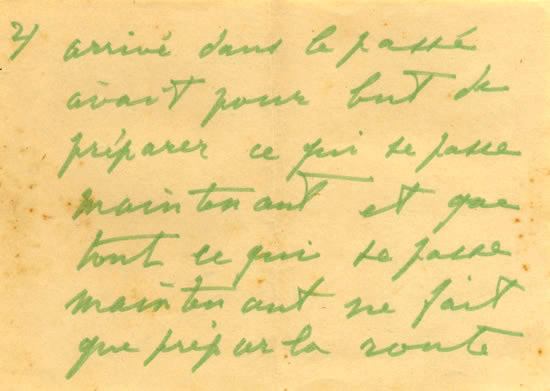 2) arrivé dans le passé
avait pour but de
préparer ce qui se passe
maintenant et que
tout ce qui se passe
maintenant ne fait
que préparer la route